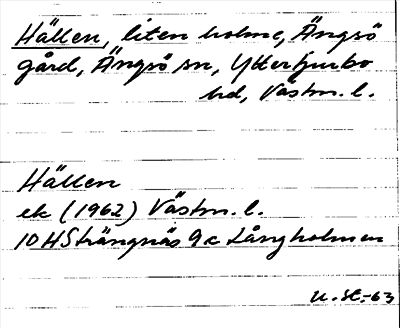 Hällen, liten holme, Ängsö
gård, Ängsö sn, Yttertjurbo
hd, Västm. l.
Hällen
ek (1962) Västm. l.
10 H Strängnäs 9 c Långholmen
U. St. -63